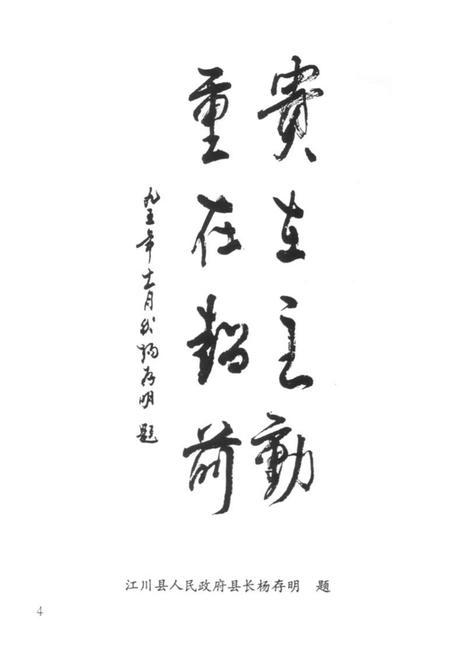 贵在主動
重在超前
九五年十二月 杨存明 题
江川县人民政府县长杨存明 题
4